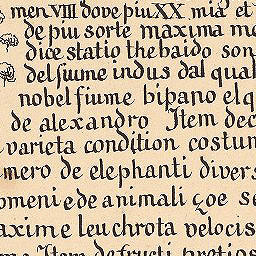 men VIII dove piu XX mia et
de piu sorte maxima me
dice statio thebaido son
del fiume indus dal qual
nobel fiume bipano el q
de alexandro Item dec
varieta condition costum
mero de elephanti divers
omeni e de animali çoe se
axime leuchrota velocis